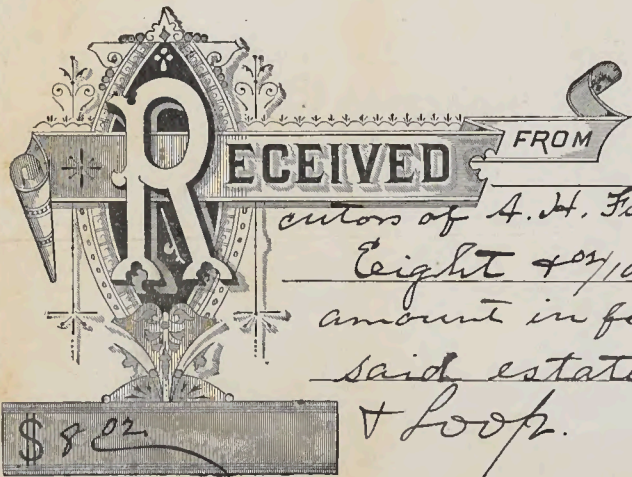 RECEIVED FROM
cutors of A. H.
Eight & 02/10
amount in
said estate
& Loop.
$ 8 02